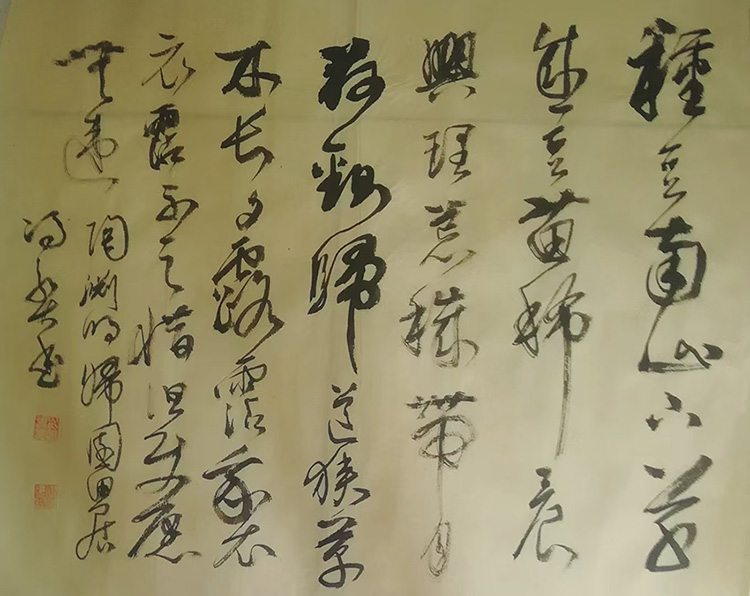 種豆南山下草
盛豆苗稀晨
興理荒穢帶月
荷鋤歸道狹草
木長夕露霑我衣
衣霑不足惜但使愿
無違 陶淵明歸園田居
冯书